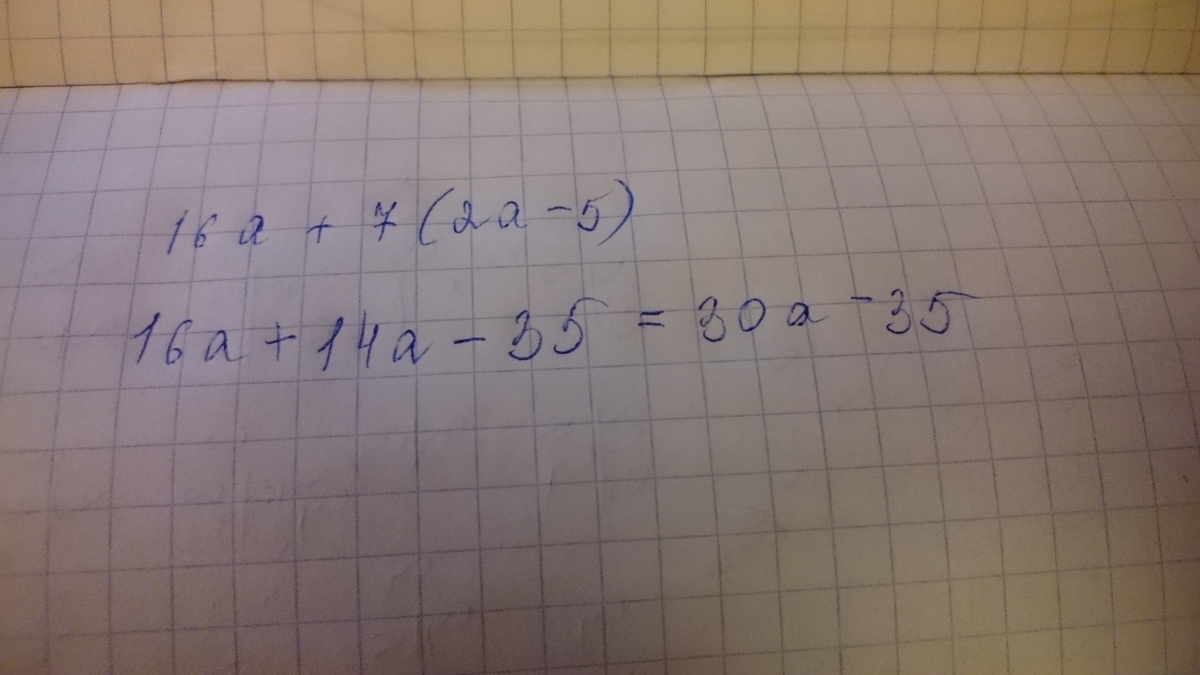 16a + 7(2a - 5)
16a + 14a - 35 = 30a - 35